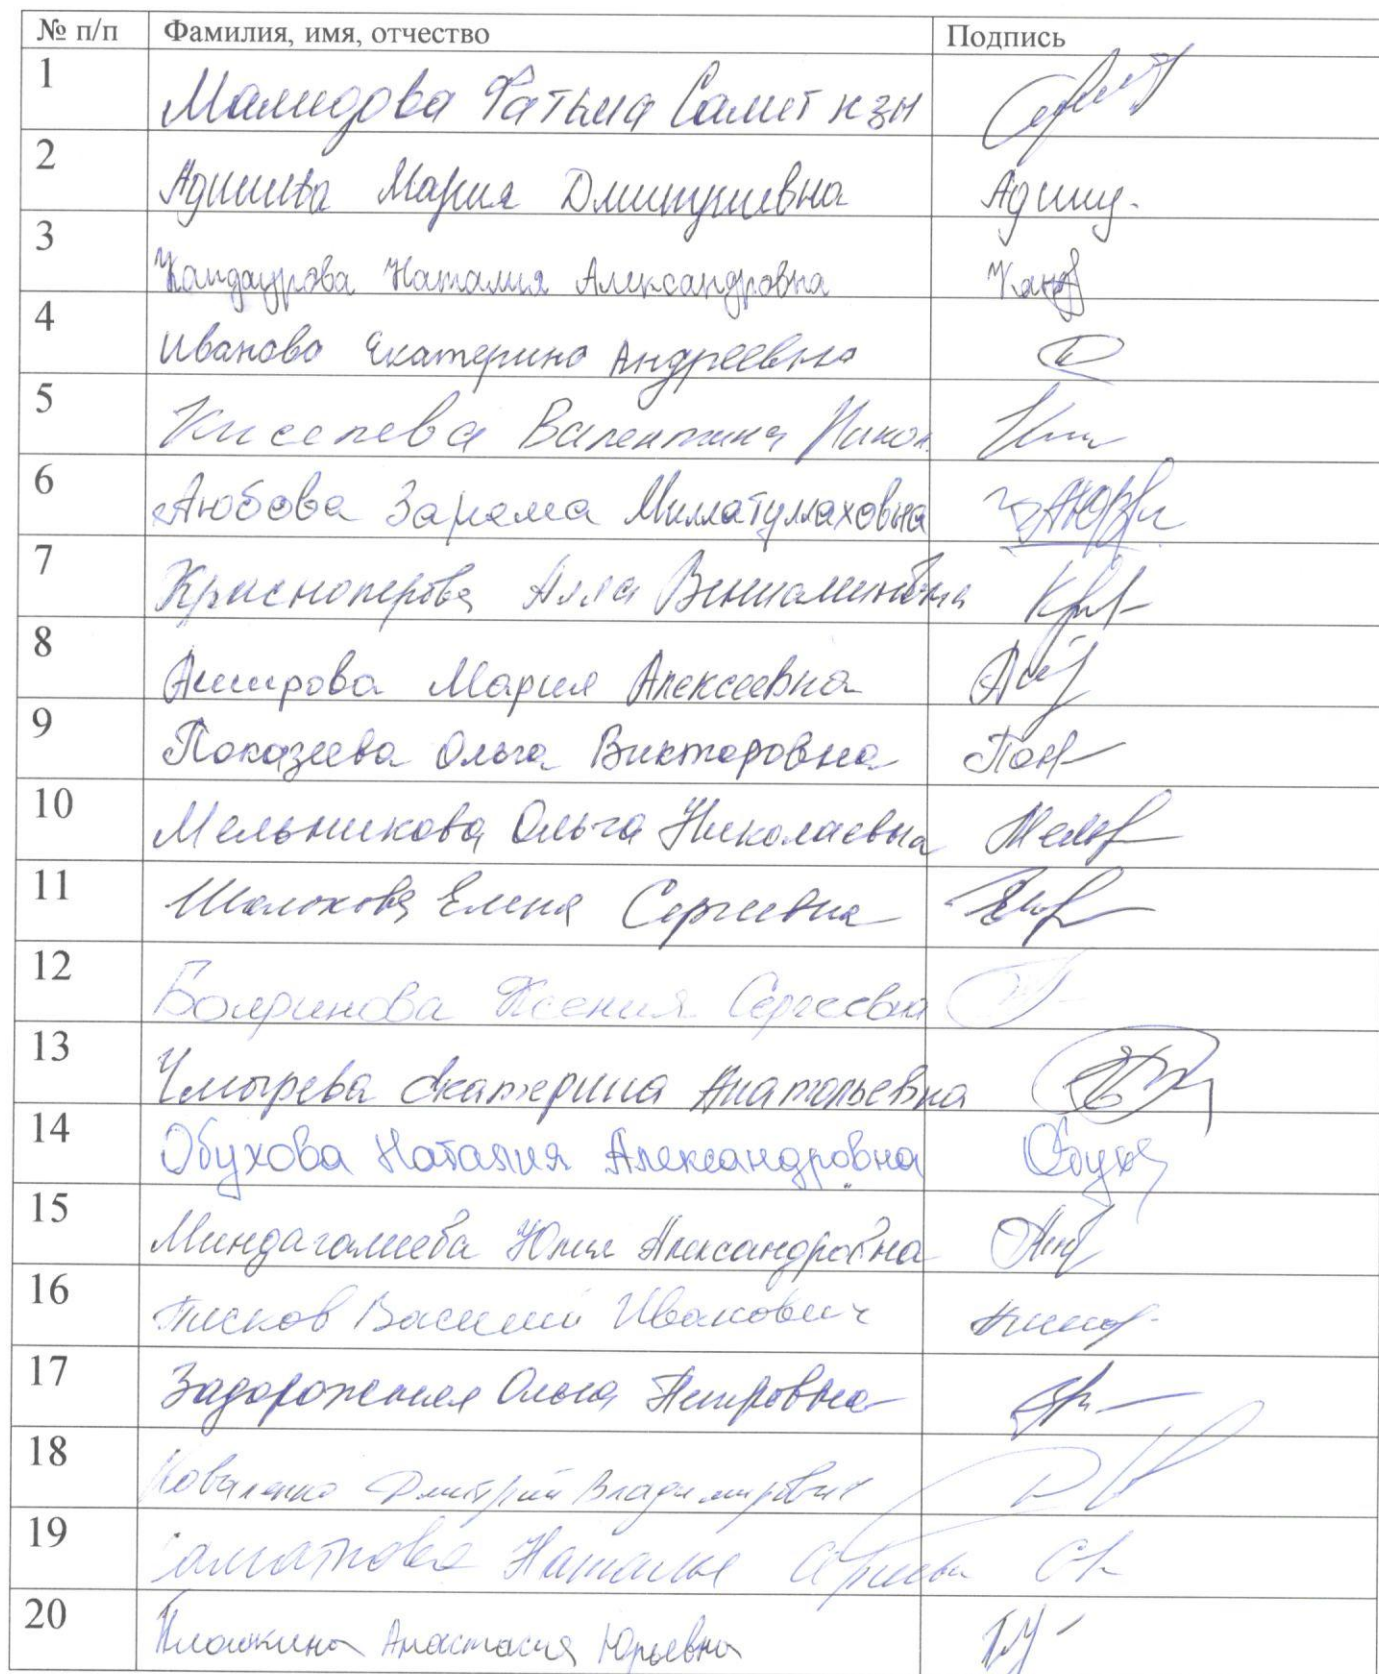 № п/п Фамилия, имя, отчество Подпись
1 Мамедова Фатьма Самет кзы
2 Мария Дмитриевна
3 Кандаурова Наталия Александровна
4 Иванова Екатерина Андреевна
5 Киселева Валентина Никол.
6 Аюбова Зарема Миллатуллаховна
7 Красноперова Алла Вениаминовна
8 Аширова Мария Алексеевна
9 Показеева Ольга Викторовна
10 Мельникова Ольга Николаевна
11 Шолохова Елена Сергеевна
12 Бояринова Ксения Сергеевна
13 Чмырева Екатерина Анатольевна
14 Обухова Наталия Александровна Обухов
15 Миндагалиева Юлия Александровна
16 Василий Иванович
17 Задорожная Ольга Петровна
18 Коваленко Дмитрий Владимирович
19 Наталья
20 Анастасия Юрьевна